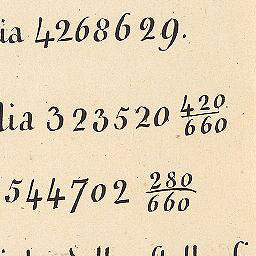 ia 4268629.
lia 323520 420/660
544702 280/660